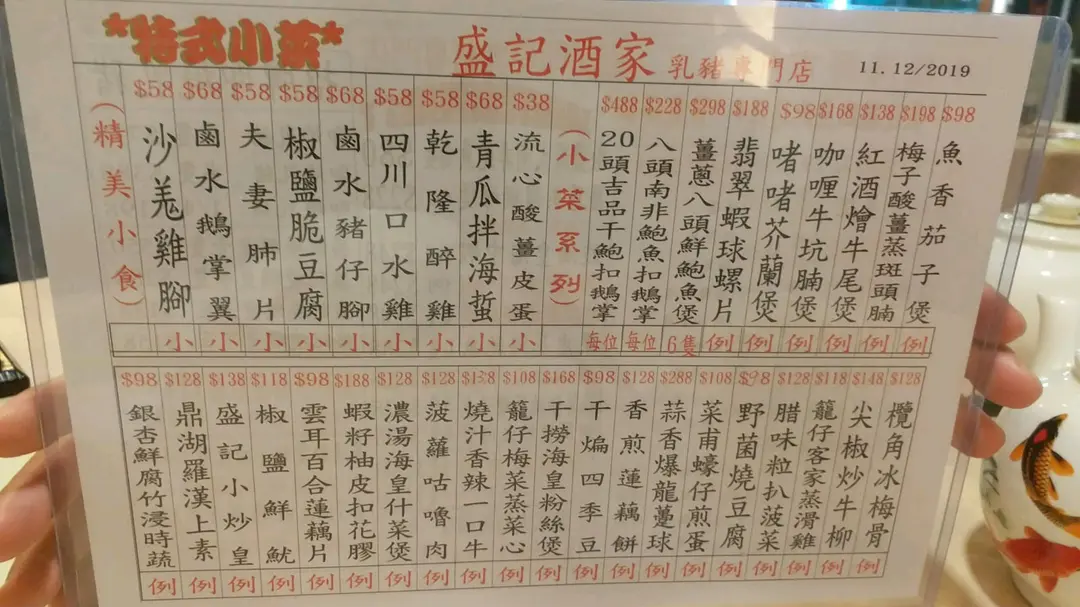 *特式小菜*
盛記酒家 乳豬專門店
11.12/2019
(精美小食)
$58 沙羗雞腳 小
$68 鹵水鵝掌翼 小
$58 夫妻肺片 小
$58 椒鹽脆豆腐 小
$68 鹵水豬仔腳 小
$58 四川口水雞 小
$58 乾隆醉雞 小
$68 青瓜拌海蜇 小
$38 流心酸薑皮蛋 小
(小菜系列)
$488 20頭吉品干鮑扣鵝掌 每位
$228 八頭南非鮑魚扣鵝掌 每位
$298 薑蔥八頭鮮鮑魚煲 6隻
$188 翡翠蝦球螺片 例
$98 啫啫芥蘭煲 例
$168 咖喱牛坑腩煲 例
$138 紅酒燴牛尾煲 例
$198 梅子酸薑蒸斑頭腩 例
$98 魚香茄子煲 例
$98 銀杏鮮腐竹浸時蔬 例
$128 鼎湖羅漢上素 例
$138 盛記小炒皇 例
$118 椒鹽鮮魷 例
$98 雲耳百合蓮藕片 例
$188 蝦籽柚皮扣花膠 例
$128 濃湯海皇什菜煲 例
$128 菠蘿咕嚕肉 例
燒汁香辣一口牛 例
$108 籠仔梅菜蒸菜心 例
$168 干撈海皇粉絲煲 例
$98 干煸四季豆 例
$128 香煎蓮藕餅 例
$288 蒜香爆龍躉球 例
$108 菜甫蠔仔煎蛋 例
$98 野菌燒豆腐 例
$128 腊味粒扒菠菜 例
$118 籠仔客家蒸滑雞 例
$148 尖椒炒牛柳 例
$128 欖角冰梅骨 例